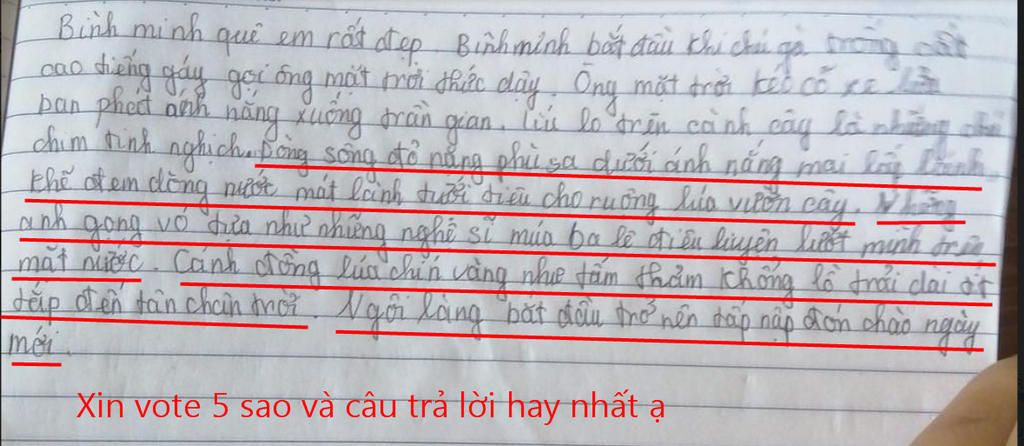 Bình minh quê em rất đẹp. Bình minh bắt đầu khi chú gà trống cất
cao tiếng gáy gọi ông mặt trời thức dậy. Ông mặt trời kéo cỗ xe lửa
ban phát ánh nắng xuống trần gian. Líu lo trên cành cây là những chú
chim tinh nghịch. Dòng sông đỏ nặng phù sa dưới ánh nắng mai lấp lánh
khẽ đem dòng nước mát lành tưới tiêu cho ruộng lúa vườn cây. Những
anh gọng vó tựa như những nghệ sĩ múa ba lê điêu luyện lướt mình trên
mặt nước. Cánh đồng lúa chín vàng như tấm thảm khổng lồ trải dài
tắp đến tận chân trời. Ngôi làng bắt đầu trở nên tấp nập đón chào ngày
mới.
Xin vote 5 sao và câu trả lời hay nhất ạ